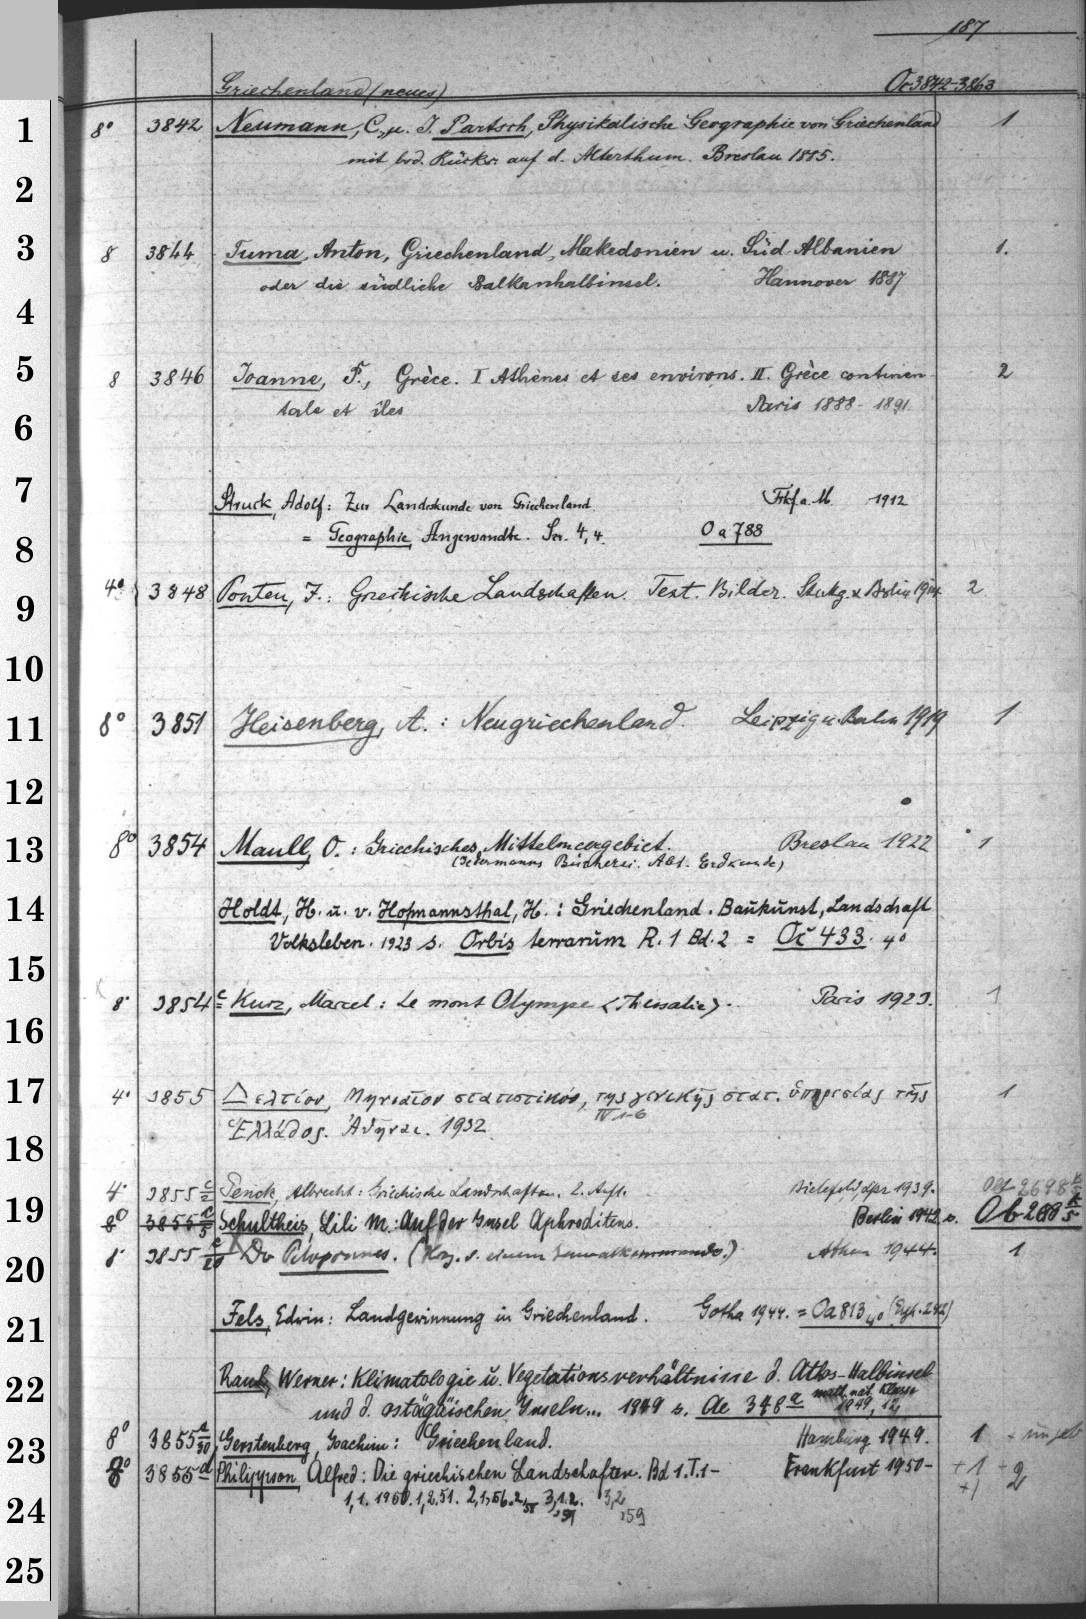 187
Griechenland (neues) Oc 3842-3863
1 8° 3842 Neumann, C. u. J. Partsch, Physikalische Geographie von Griechenland 1
mit bes. Rücks. auf d. Alterthum. Breslau 1885.
2
3 8 3844 Tuma, Anton, Griechenland, Makedonien u. Süd-Albanien 1.
oder die südliche Balkanhalbinsel. Hannover 1887
4
5 8 3846 Joanne, P., Grèce. I Athènes et ses environs. II. Grèce continen- 2
tale et îles Paris 1888-1891.
6
7 Struck, Adolf: Zur Landeskunde von Griechenland Frkf. a. M. 1912
8 = Geographie, Angewandte. Ser. 4,4. Oa 788
9 4° 3848 Ponten, J.: Griechische Landschaften. Text. Bilder. Stuttg. u. Berlin 1914 2
10
11 8° 3851 Heisenberg, A.: Neugriechenland. Leipzig u. Berlin 1919 1
12
13 8° 3854 Maull, O.: Griechisches Mittelmeergebiet. Breslau 1922 1
(Jedermanns Bücherei. Abt. Erdkunde)
14 Holdt, H. u. v. Hofmannsthal, H.: Griechenland. Baukunst, Landschaft
Volksleben. 1923 s. Orbis terrarum R. 1 Bd. 2 = Oc 433. 4°
15
16 8° 3854 c Kurz, Marcel: Le mont Olympe <Thessalie>. Paris 1923. 1
17 4° 3855 Δελτίον, Μηνιαῖον στατιστικόν, τῆς γενικῆς στατ. ὑπηρεσίας τῆς 1
IV 1-6
Ἑλλάδος. Ἀθῆναι. 1932
18
19 4° 3855 c/2 Penck, Albrecht: Griechische Landschaften. 2. Aufl. Bielefeld, Lpz 1939.
8° 3855 c/5 Schultheis, Lili M.: Auf der Insel Aphroditens. Berlin 1942 s. Ob 288 k/5
20 8° 3855 c/20 Der Peloponnes. (Hrsg. v. einem Generalkommando.) Athen 1944. 1
21 Fels, Edwin: Landgewinnung in Griechenland. Gotha 1944. = Oa 813 4° (Ergh. 242)
22 Rauh, Werner: Klimatologie u. Vegetationsverhältnisse d. Athos-Halbinsel
und d. ostägäischen Inseln... 1949 s. Ae 348 a math. nat. Klasse 1949, 12.
23 8° 3855 c/30 Gerstenberg, Joachim: Griechenland. Hamburg 1949. 1
8° 3855 d Philippson, Alfred: Die griechischen Landschaften. Bd 1. T. 1- Frankfurt 1950- +1 +2
+1
24 1,1. 1950. 1,2.51. 2,1,56. 2,2,58 3,1.2. 3,2
,59
25